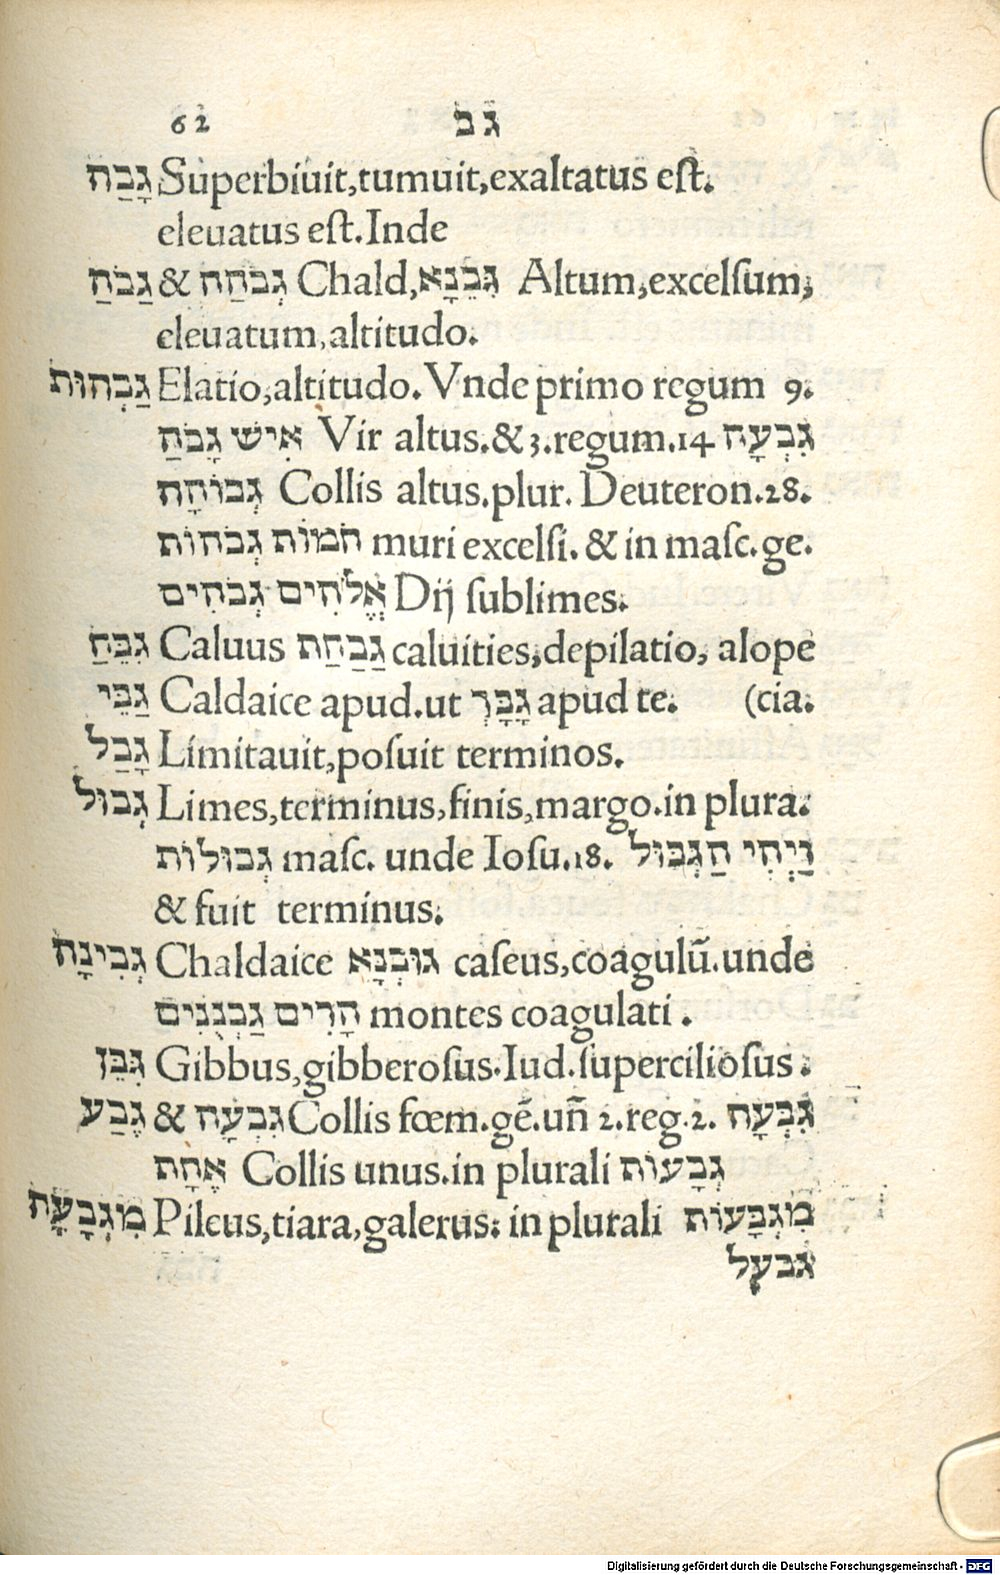 62 גב
גָבַה Superbiuit,tumuit,exaltatus eſt.
eleuatus eſt.Inde
גַבֹהַ & גְבֹהַה Chald,גִּבֵנָא Altum,excelſum,
eleuatum,altitudo.
גַבְהוּת Elatio,altitudo. Vnde primo regum 9.
אִישׁ גָבֹהַ Vir altus.& 3.regum.14 גִבְעָה
גְבוֹהָה Collis altus.plur. Deuteron.28.
חֹמוֹת גְבֹהוֹת muri excelſi. & in maſc.ge.
אֱלֹהִים גְבֹהִים Dij ſublimes.
גִבֵּחַ Caluus גַבַּחַת caluities,depilatio, alope
גַבֵּי Caldaice apud.ut גָבָּךְ apud te. (cia.
גָבַל Limitauit,poſuit terminos.
גְבוּל Limes,terminus,finis,margo.in plura.
גְבוּלוֹת maſc. unde Ioſu.18. וַיְהִי הַגְּבוּל
& fuit terminus.
גְבִינָה Chaldaice גוּבְנָא caſeus,coagulū.unde
הָרִים גַבְנֻנִּים montes coagulati .
גִּבֵּן Gibbus,gibberoſus.Iud.ſupercilioſus .
גֶבַע & גִבְעָה Collis fœm.gē.un̄ 2.reg.2. גִּבְעָה
אֶחָת Collis unus.in plurali גְבָעוֹת
מִגְבָּעָת Pileus,tiara,galerus: in plurali מִגְבָּעוֹת
גבעל
Digitalisierung gefördert durch die Deutsche Forschungsgemeinschaft - DFG